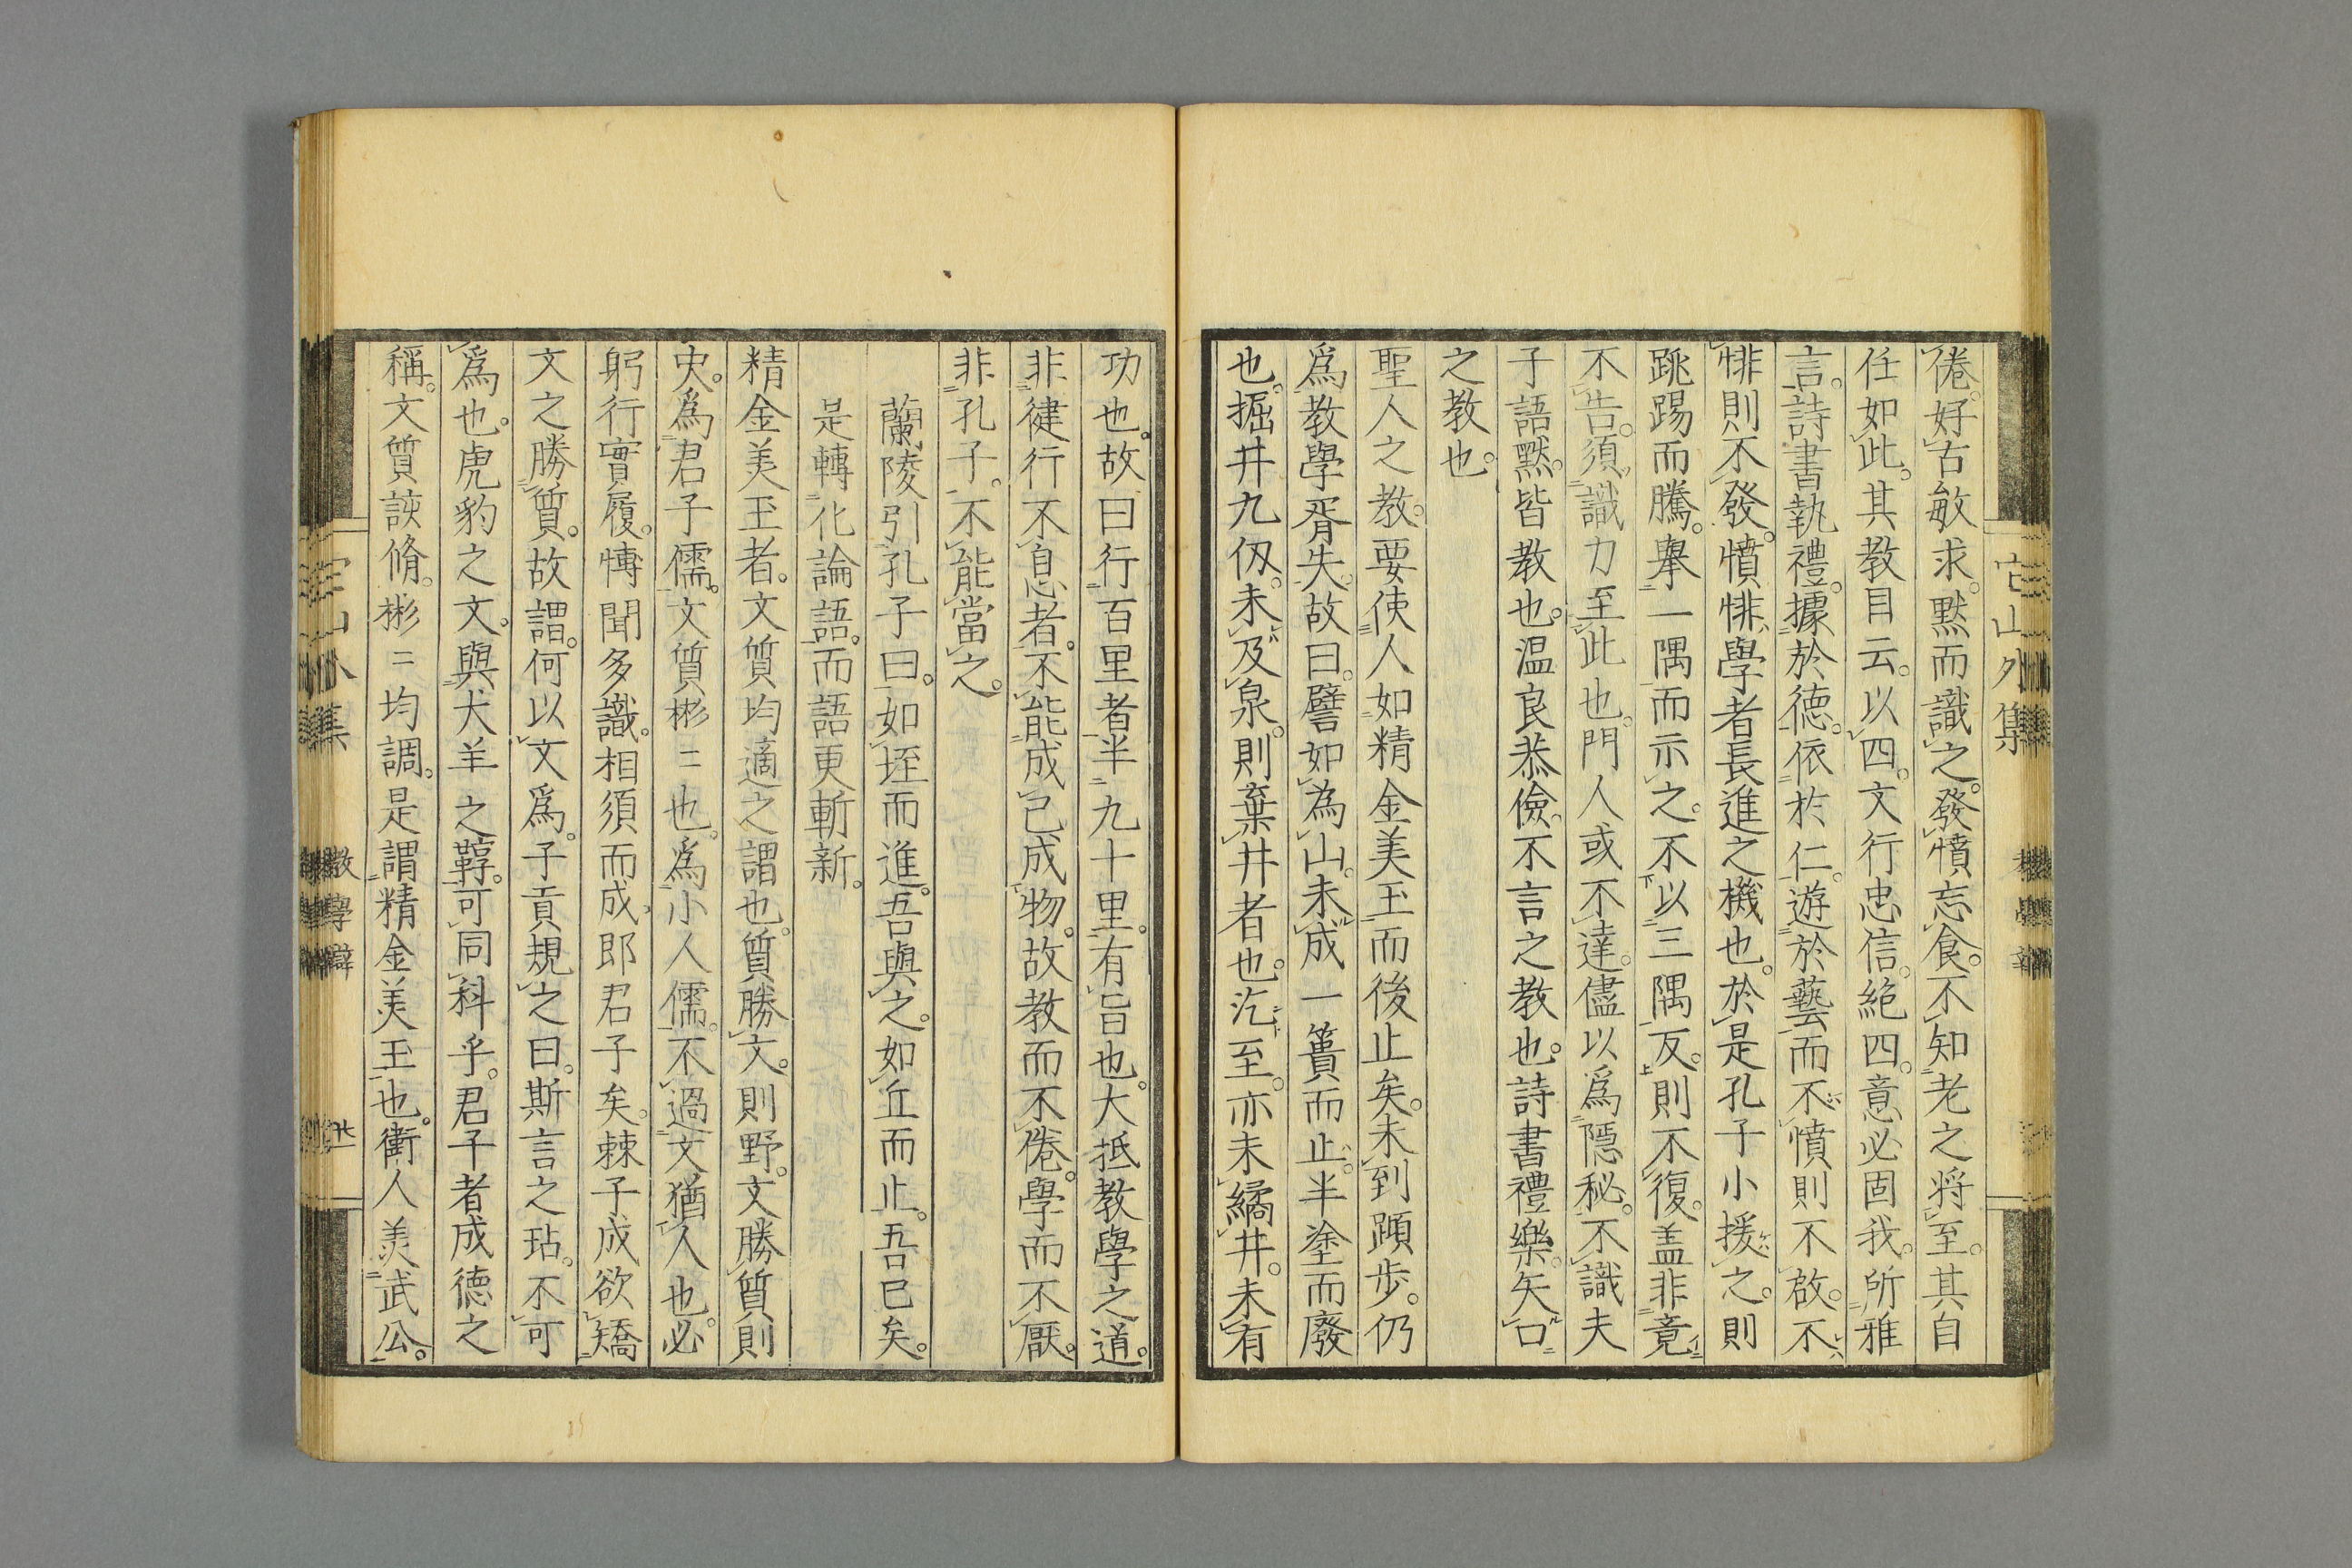 倦。好古敏求。默而識之。發憤忘食。不知老之將至。其自
任如此。其教目云。以四。文行忠信。絶四。意必固我。所雅
言。詩書執禮。據於德。依於仁。遊於藝。而不憤則不啟。不
悱則不發。憤悱學者長進之機也。於是孔子小援之。則
跳踢而騰。擧一隅而示之。不以三隅反。則不復。蓋非竟
不告。須識力至此也。門人或不達。儘以爲隱秘。不識夫
子語默。皆教也。温良恭儉。不言之教也。詩書禮樂。矢口
之教也。
聖人之教。要使人如精金美玉而後止矣。未到蹞步。仍
爲教學胥失。故曰。譬如為山。未成一簣而止。半塗而廢
也。掘井九仭。未及泉。則棄井者也。汔至。亦未繘井。未有
功也。故曰行百里者半九十里。有旨也。大抵教學之道。
非健行不息者。不能成己成物。故教而不倦。學而不厭。
非孔子。不能當之。
蘭陵引孔子曰。如垤而進。吾與之。如丘而止。吾已矣。
是轉化論語。而語更斬新。
精金美玉者。文質均適之謂也。質勝文。則野。文勝質則
史。爲君子儒。文質彬〻也。爲小人儒。不過文猶人也。必
躬行實履。慱聞多識。相須而成。郎君子矣。棘子成欲矯
文之勝質。故謂。何以文爲。子貢規之曰。斯言之玷。不可
爲也。虎豹之文。與犬羊之鞟。可同科乎。君子者成德之
稱。文質該脩。彬〻均調。是謂精金美玉也。衛人美武公。
宅山外集
教學辯
廿